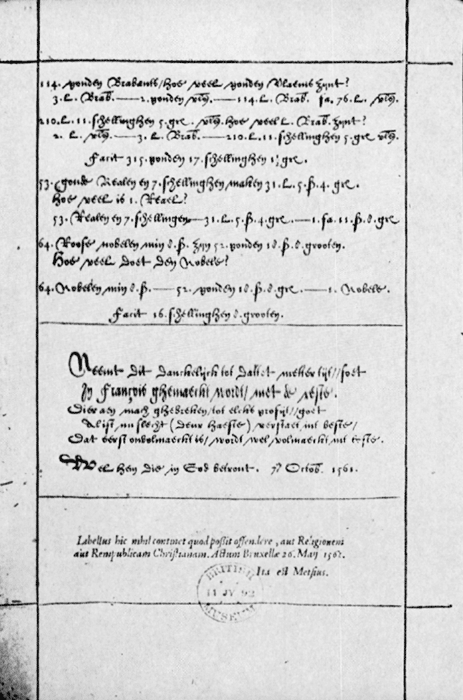 114. ponden Brabants/hoe veel ponden Vlaems zijnt?
3. L. Brab. — 2. ponden vlš. — 114. L. Brab. fa. 76. L. vlš.
210. L. 11. schellinghen 5. gre. vlš. hoe veel L. Brab. zijnt?
2. L. vlš. — 3. L. Brab. — 210. L. 11. schellinghen 5. gre vlš.
Facit 315. ponden 17. schellinghen gre.
53. goude Realen en 7. schellinghen maken 31. L. 5. ß. 4. gre.
hoe veel is 1. Reael?
53. Realen en 7. schellingen — 31. L. 5. ß. 4. gre. — 1. fa. 11. ß. 8. gre
64. Roose nobelen min 8. ß. zijn 52. ponden 18. ß. 8. grooten.
Hoe veel doet den Nobele?
64. Nobelen min 8. ß. — 52. ponden 18. ß. 8. gre — 1. Nobele.
Facit 16. schellinghen 8. grooten.
Neemt dit danckelijck tot datter meher zy// soet
In François ghemaeckt wordt/ met de reste.
Dier aen mach ghebreken/ tot elcks profijt// goet
Alist nu slecht (deur haeste) verstaet int beste/
Dat eerst onvolmaeckt is/ wordt wel volmaeckt int
Wel hem die in God betrout. Octob. 1561.
Libellus hic nihil continet quod possit offendere, aut Religionem
aut Rempublicam Christianam. Actum Bruxellæ 26. Maij
Ita est Metsius.
BRITISH
11 JY 92
MUSEUM